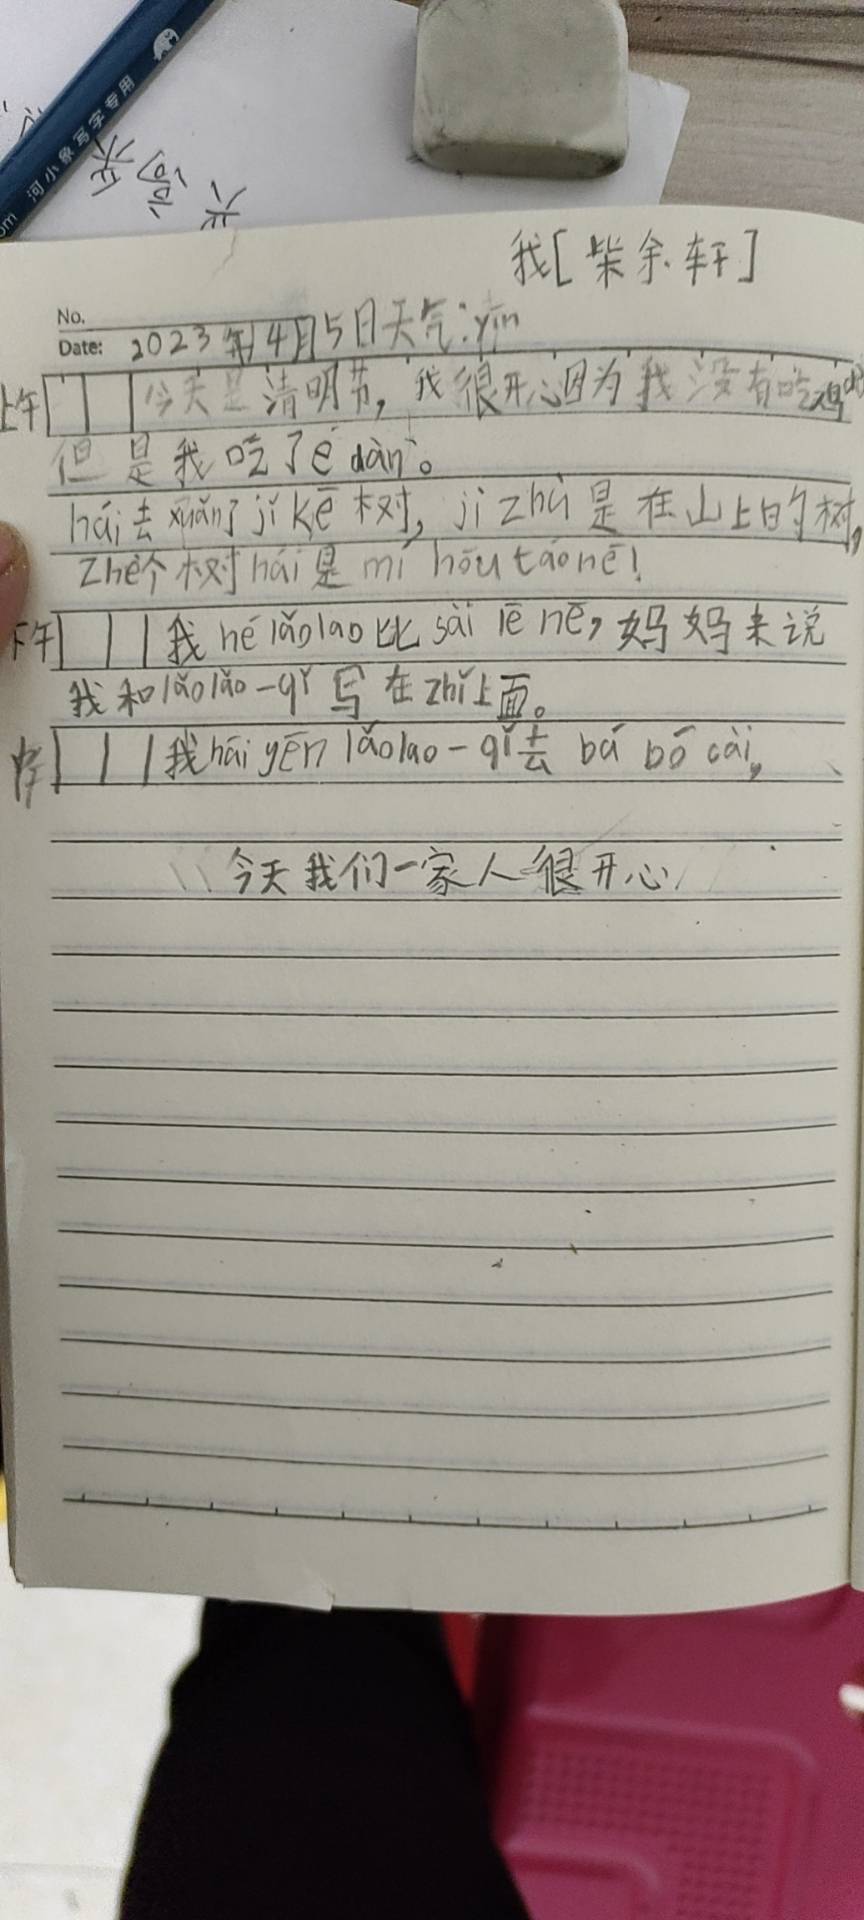 河小象写字专用
我[柴余轩]
No.
Date: 2023年4月5日天气:yīn
上午 今天是清明节，我很开心因为我没有吃鸡
但是我吃了é dàn。
hái去xuǎn了jǐ kē树，jǐ zhū是在山上的树，
zhè个树hái是mí hóu táo nē！
下午 我hé lǎolao比sài lē nē，妈妈来说
我和lǎolǎo一qǐ写在zhǐ上面。
我hāi yēn lǎolao一qǐ去bá bō cài，
今天我们一家人很开心